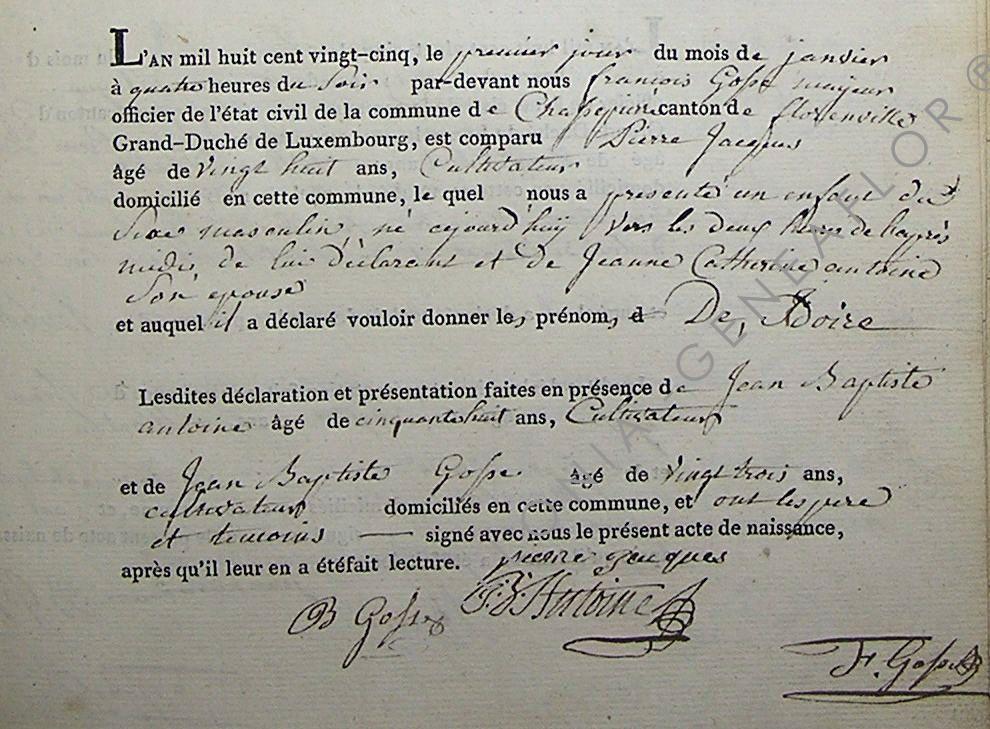 L'AN mil huit cent vingt-cinq, le premier jour du mois de janvier
à quatre heures du Soir par-devant nous françois Gosse mayeur
officier de l'état civil de la commune de Chassepierre canton de florenville
Grand-Duché de Luxembourg, est comparu Pierre Jacques
âgé de Vingt huit ans, Cultivateur
domicilié en cette commune, le quel nous a presenté un enfant du
Sexe masculin, né cejourd'huy vers les deux heures de l'après
midis, de lui déclarant et de Jeanne Catherine antoine
Son epouse
et auquel il a déclaré vouloir donner le, prénom, d De,
Lesdites déclaration et présentation faites en présence de Jean Baptiste
antoine âgé de cinquante huit ans, Cultivateur
et de Jean Baptiste Gosse âgé de vingt trois ans,
cultivateur domiciliés en cette commune, et ont les pere
et temoins signé avec nous le présent acte de naissance,
après qu'il leur en a été fait lecture. pierre jacques
B Gosse J. B. Antoine
F. Gosse
GENEAFLOR ®